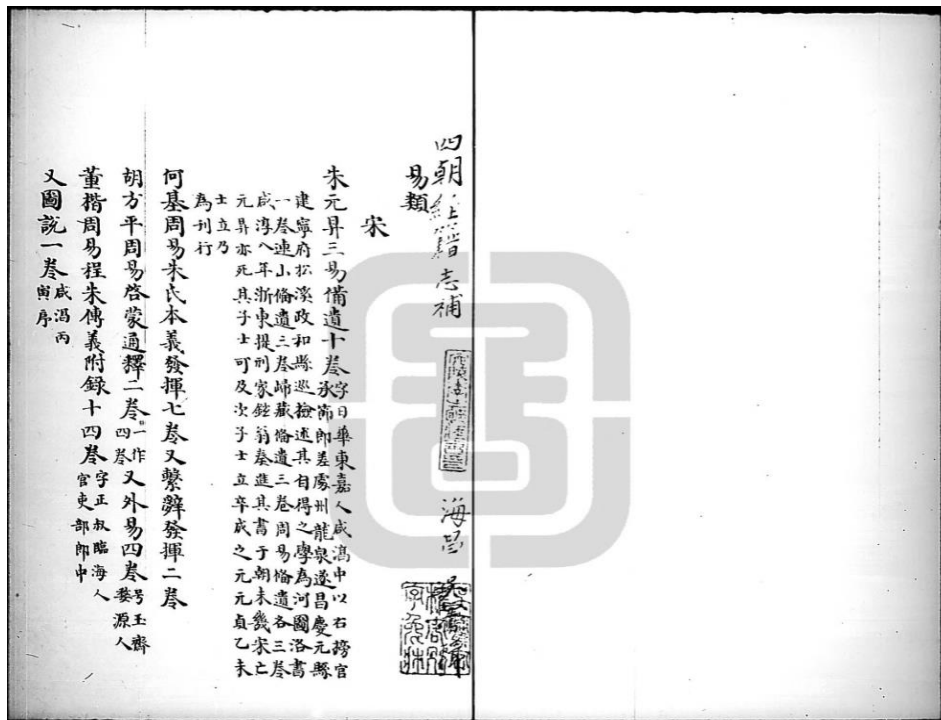 四朝經籍志補 海昌
易類
宋
朱元昇三易備遺十卷
字日華東嘉人咸淳中以右榜官
承節郎差處州龍泉遂昌慶元縣
建寧府松溪政和縣巡檢述其自得之學為河圖洛書
一卷連山備遺三卷歸藏備遺三卷周易備遺各三卷
咸淳八年浙東提刑家鉉翁奏進其書于朝未幾宋亡
元昇亦死其子士可及次子士立卒成之元元貞乙未
士立乃
為刊行
何基周易朱氏本義發揮七卷又繫辭發揮二卷
胡方平周易啓蒙通釋二卷
一作
四卷
又外易四卷
号玉齋
婺源人
董楷周易程朱傳義附錄十四卷
字正叔臨海人
官吏部郎中
又圖說一卷
咸淳丙
寅序